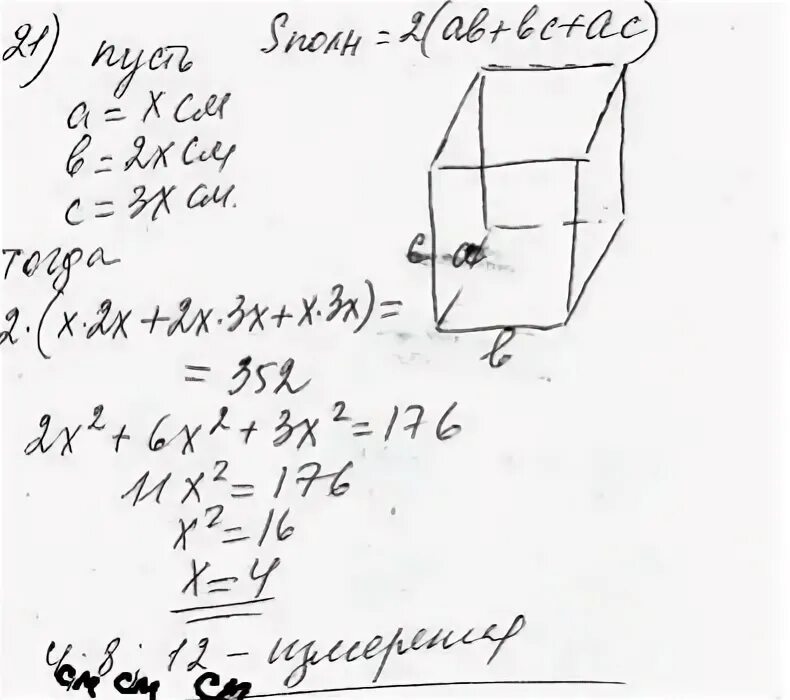 21) пусть Sполн = 2(ab+bc+ac)
a = x см
b = 2x см
c = 3x см.
тогда
2·(x·2x+2x·3x+x·3x)=
= 352
2x² + 6x² + 3x² = 176
11x² = 176
x² = 16
x = 4
4 см 8 см 12 см – измерения
c a
b